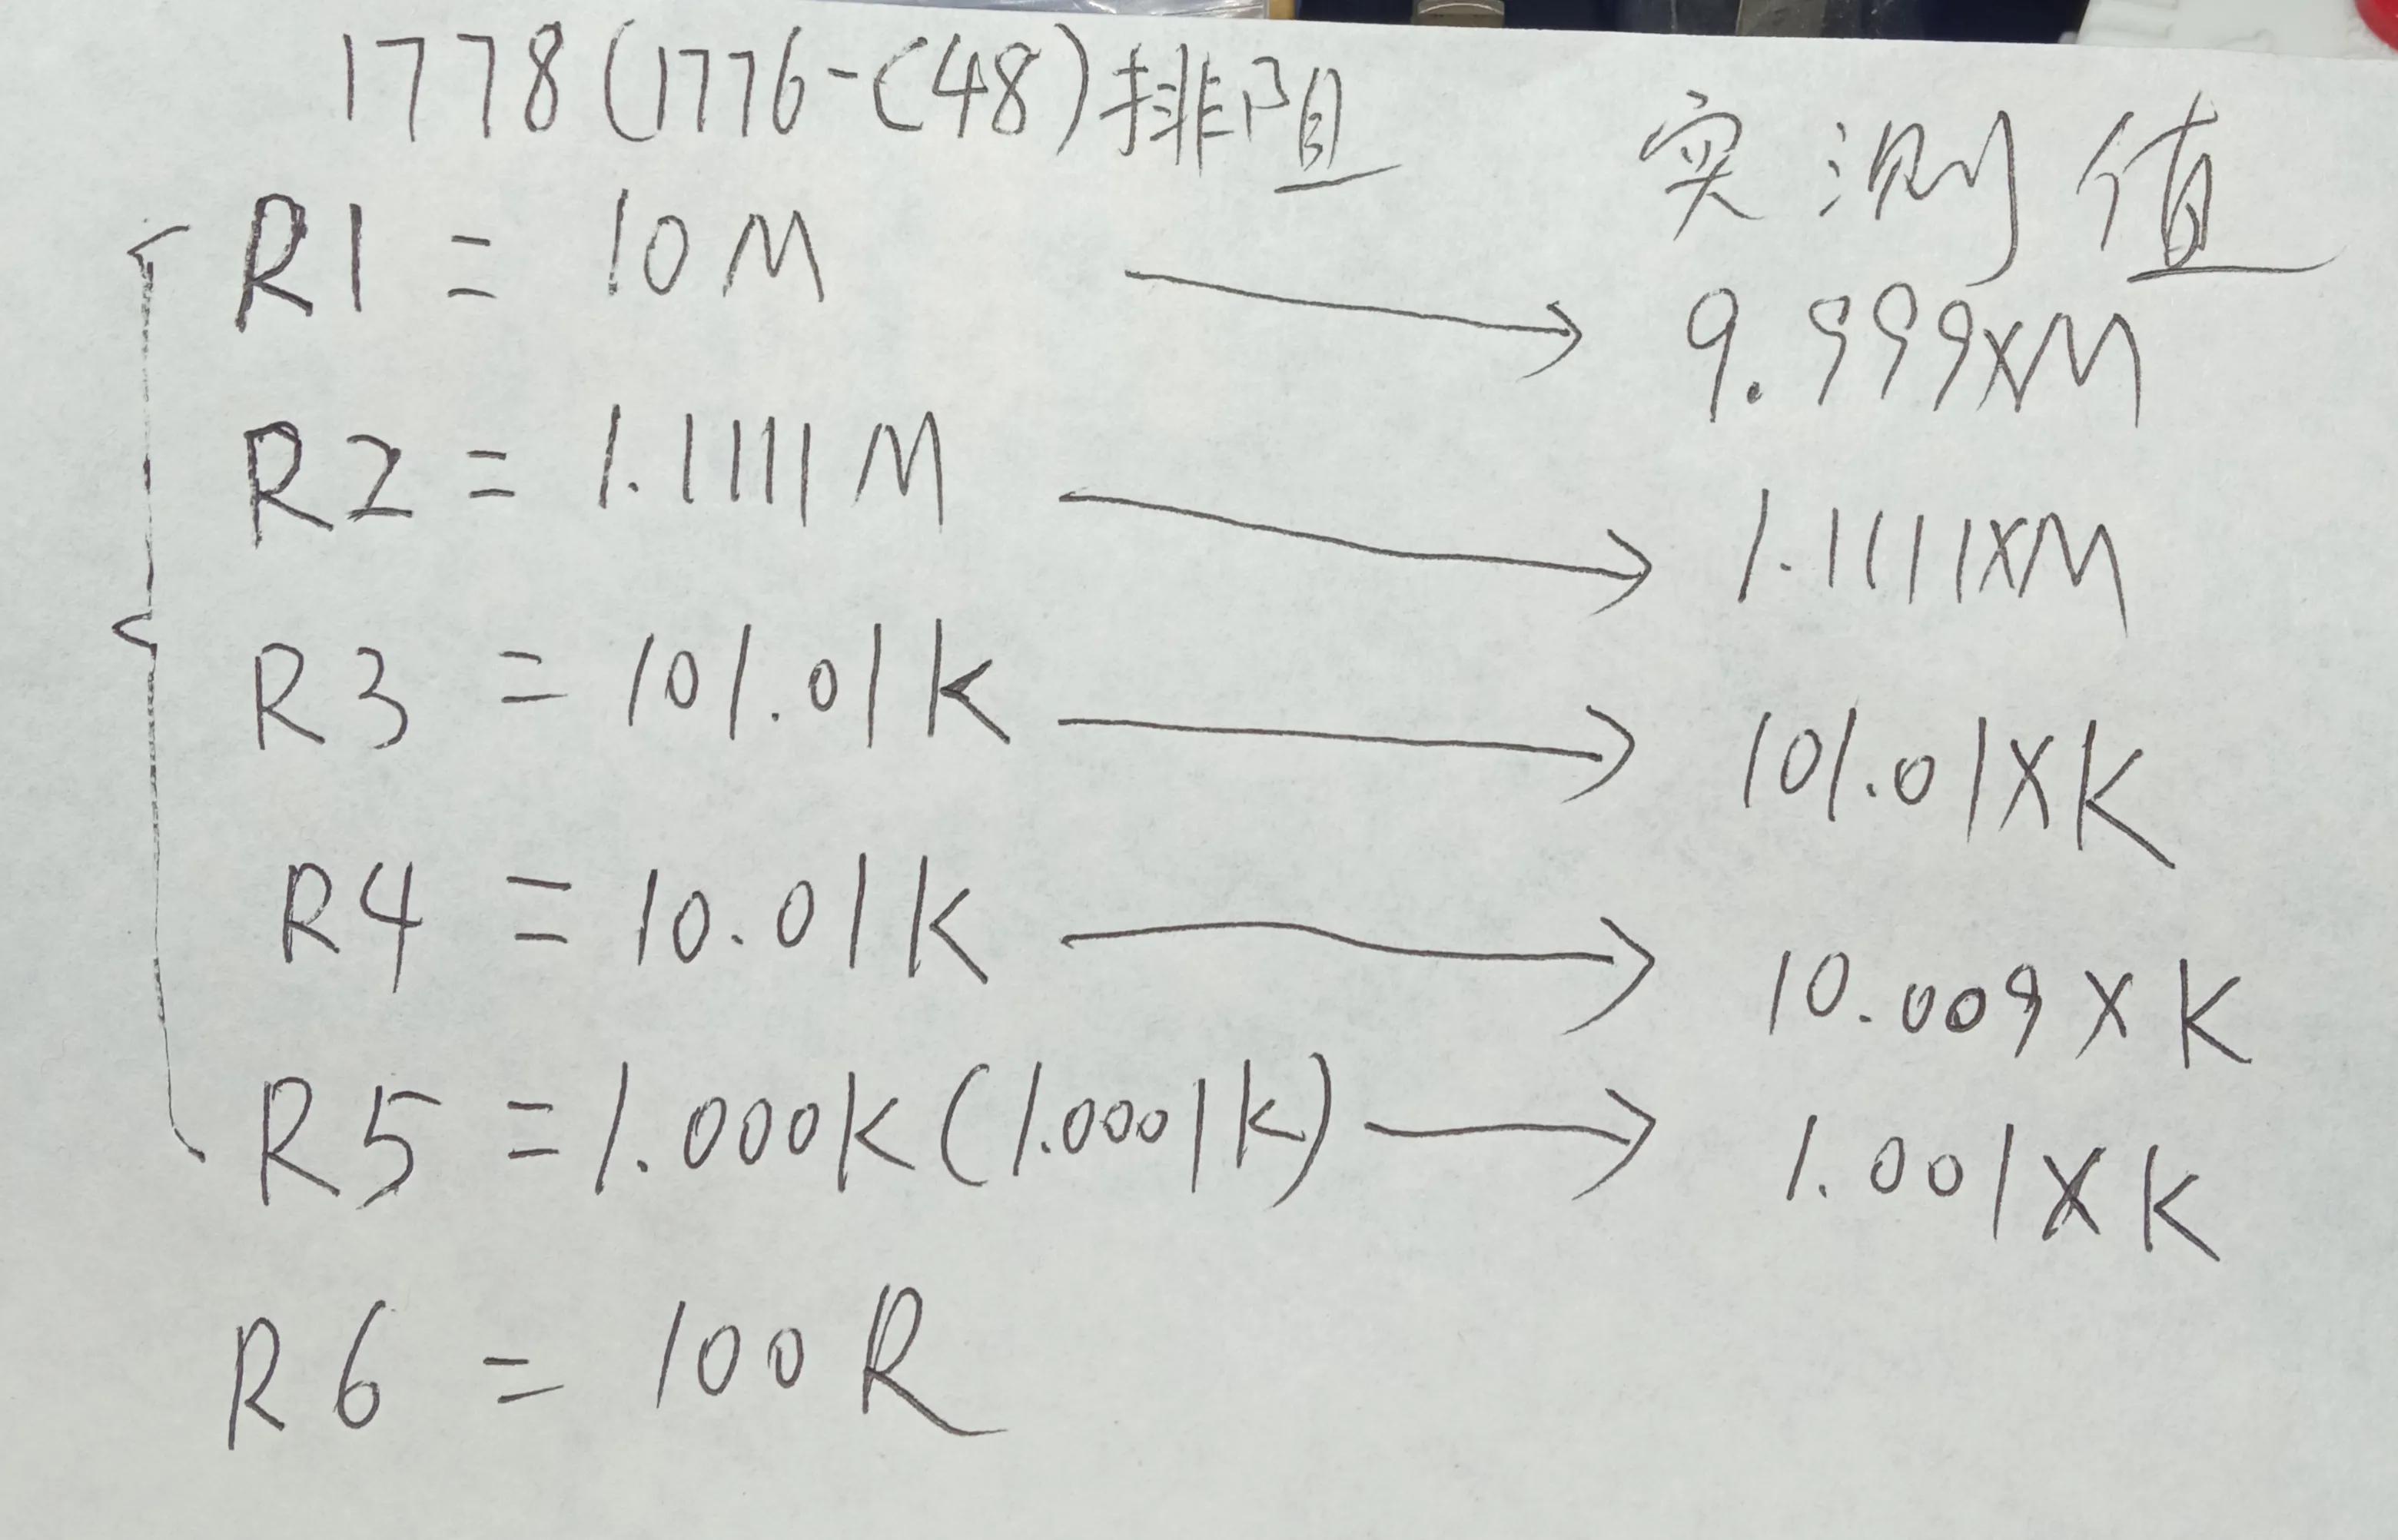 1778(1776-C48)排阻
实测值
R1 = 10M → 9.999xM
R2 = 1.1111M → 1.1111xM
R3 = 101.01K → 101.01xK
R4 = 10.01K → 10.009xK
R5 = 1.000K(1.0001k) → 1.001xK
R6 = 100R